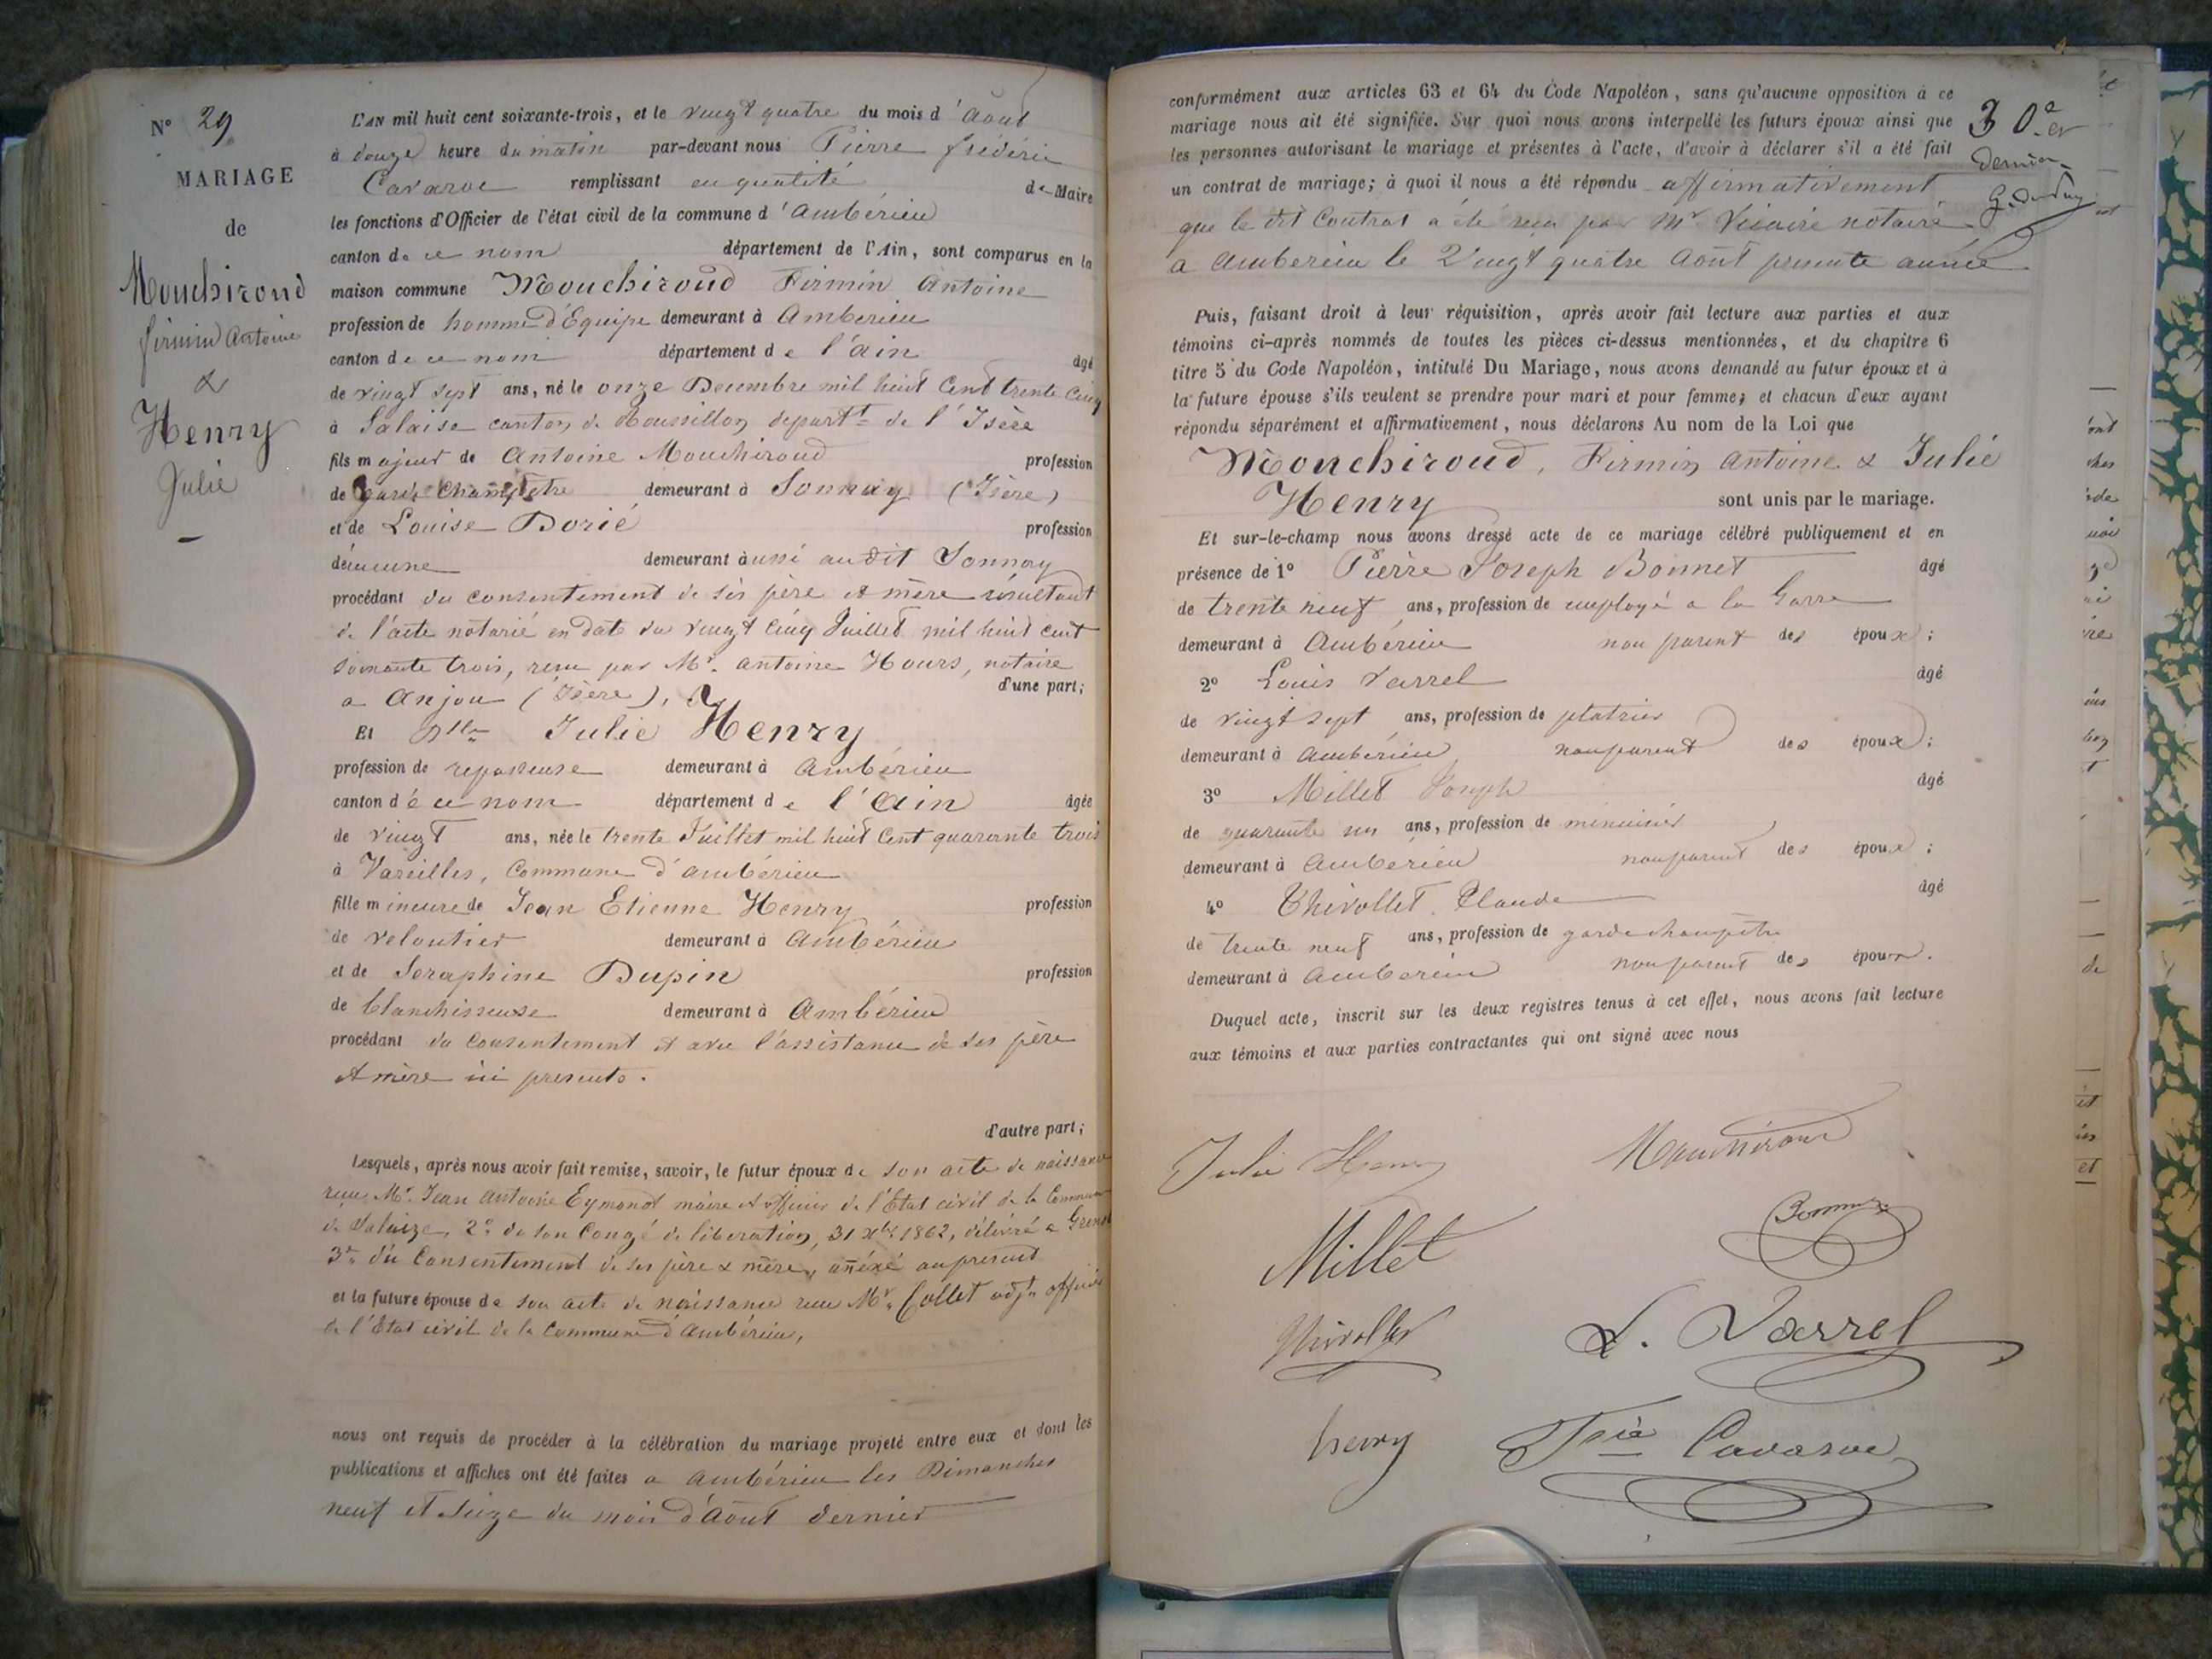 N° 29
MARIAGE
de
Mouchiroud
firmin Antoine
&
Henry
Julie
L'AN mil huit cent soixante-trois, et le vingt quatre du mois d'aout
à douze heure du matin par-devant nous Pierre frédéric
Cavaroc remplissant en qualité de Maire
les fonctions d'Officier de l'état civil de la commune d'ambérieu
canton de ce nom département de l'Ain, sont comparus en la
maison commune Mouchiroud Firmin Antoine
profession de homme d'Equipe demeurant à Amberieu
canton de ce nom département de l'ain âgé
de vingt sept ans, né le onze Decembre mil huit Cent trente Cinq
à Salaise canton de Roussillon depart.t de l'Isère
fils majeur de Antoine Mouchiroud profession
de garde Champêtre demeurant à Sonnay (Isère)
et de Louise Dorié profession
demeurant aussi audit Sonnay
procédant du consentement de ses père et mère résultant
de l'acte notarié en date du vingt Cinq Juillet mil huit cent
soixante trois, recu par Mr. antoine Hours, notaire
a Anjou (Isère), d'une part;
Et Dlle Julie Henry
profession de repasseuse demeurant à Ambérieu
canton de ce nom département de l'Ain âgée
de vingt ans, née le trente Juillet mil huit Cent quarante trois
à Vareilles, Commune d'ambérieu
fille mineure de Jean Etienne Henry profession
de veloutier demeurant à Ambérieu
et de Seraphine Dupin profession
de blanchisseuse demeurant à Ambérieu
procédant du consentement et avec l'assistance de ses père
et mère ici presents.
d'autre part;
Lesquels, après nous avoir fait remise, savoir, le futur époux de son acte de naissance
recu Mr. Jean Antoine Eymonot maire et officier de l'Etat civil de la Commune
de Salaize, 2° de son Congé de liberation, 31 Xbre 1862, délivré a
3° du Consentement de ses père & mère, anéxé au present
et la future épouse de son acte de naissance recu Mr. Collet adjt officier
de l'Etat civil de la Commune d'ambérieu,
nous ont requis de procéder à la célébration du mariage projeté entre eux et dont les
publications et affiches ont été faites a ambérieu les Dimanches
neuf et seize du mois d'aout dernier
conformément aux articles 63 et 64 du Code Napoléon, sans qu'aucune opposition à ce
mariage nous ait été signifiée. Sur quoi nous avons interpellé les futurs époux ainsi que
les personnes autorisant le mariage et présentes à l'acte, d'avoir à déclarer s'il a été fait
un contrat de mariage; à quoi il nous a été répondu affirmativement
que le dit Contrat a été recu par Mr Vicaire notaire
a Amberieu le vingt quatre Aout presente année
Puis, faisant droit à leur réquisition, après avoir fait lecture aux parties et aux
témoins ci-après nommés de toutes les pièces ci-dessus mentionnées, et du chapitre 6
titre 5 du Code Napoléon, intitulé Du Mariage, nous avons demandé au futur époux et à
la future épouse s'ils veulent se prendre pour mari et pour femme; et chacun d'eux ayant
répondu séparément et affirmativement, nous déclarons Au nom de la Loi que
Mouchiroud, Firmin Antoine & Julie
Henry sont unis par le mariage.
Et sur-le-champ nous avons dressé acte de ce mariage célébré publiquement et en
présence de 1° Pierre Joseph Bonnet âgé
de trente neuf ans, profession de employé a la Garre
demeurant à Ambérieu non parent des époux;
2° Louis Varrel âgé
de vingt sept ans, profession de platrier
demeurant à ambérieu non parent des époux;
3° Millet Joseph âgé
de quarante ans, profession de menuisier
demeurant à Ambérieu non parent des époux;
4° Thivollet Claude âgé
de trente neuf ans, profession de garde champêtre
demeurant à Ambérieu non parent des époux.
Duquel acte, inscrit sur les deux registres tenus à cet effet, nous avons fait lecture
aux témoins et aux parties contractantes qui ont signé avec nous
Julie Henry Mouchiroud
Millet Bonnet
Thivollet L. Varrel
henry Cavaroc